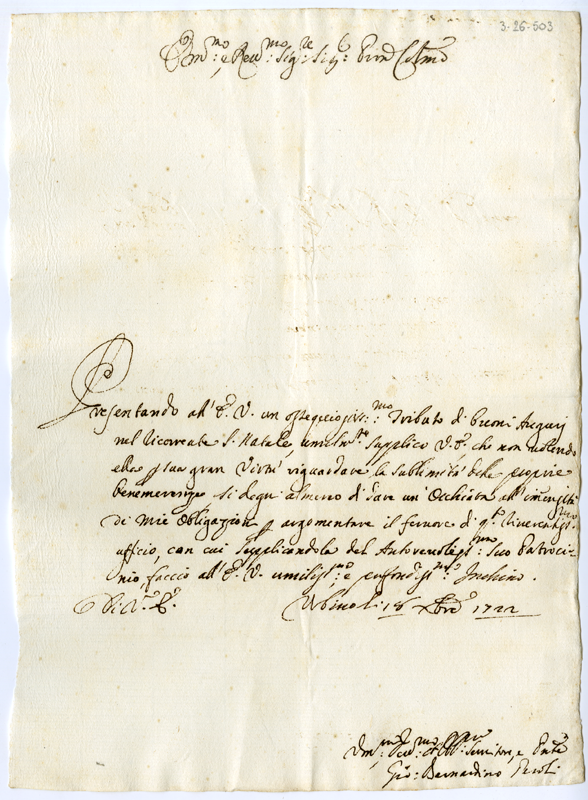 3-26-503
Em:mo e Rev:mo Sig:re Sig: Pron Col:mo
Presentando all' E. V. un ossequiosissi:mo Tributo di buoni Augurj
nel ricorrente S. Natale, umilm:te supplico V. E. che non volendo
ella p sua gran Virtù riguardare la sublimità delle proprie
benemerenze si degni almeno di dare un' Occhiata all'
di mie Obligazioni p argomentare il fervore di q:to
ufficio, con cui supplicandola del Autorevoliss:mo suo Patroci-
nio, faccio all' E. V. umiliss:mo e profondiss:mo Inchino.
Di V. E. Urbino li 18 Xbre 1722
Um:mo Dev:mo Obl:mo Servitore, e
Gio: Bernardino